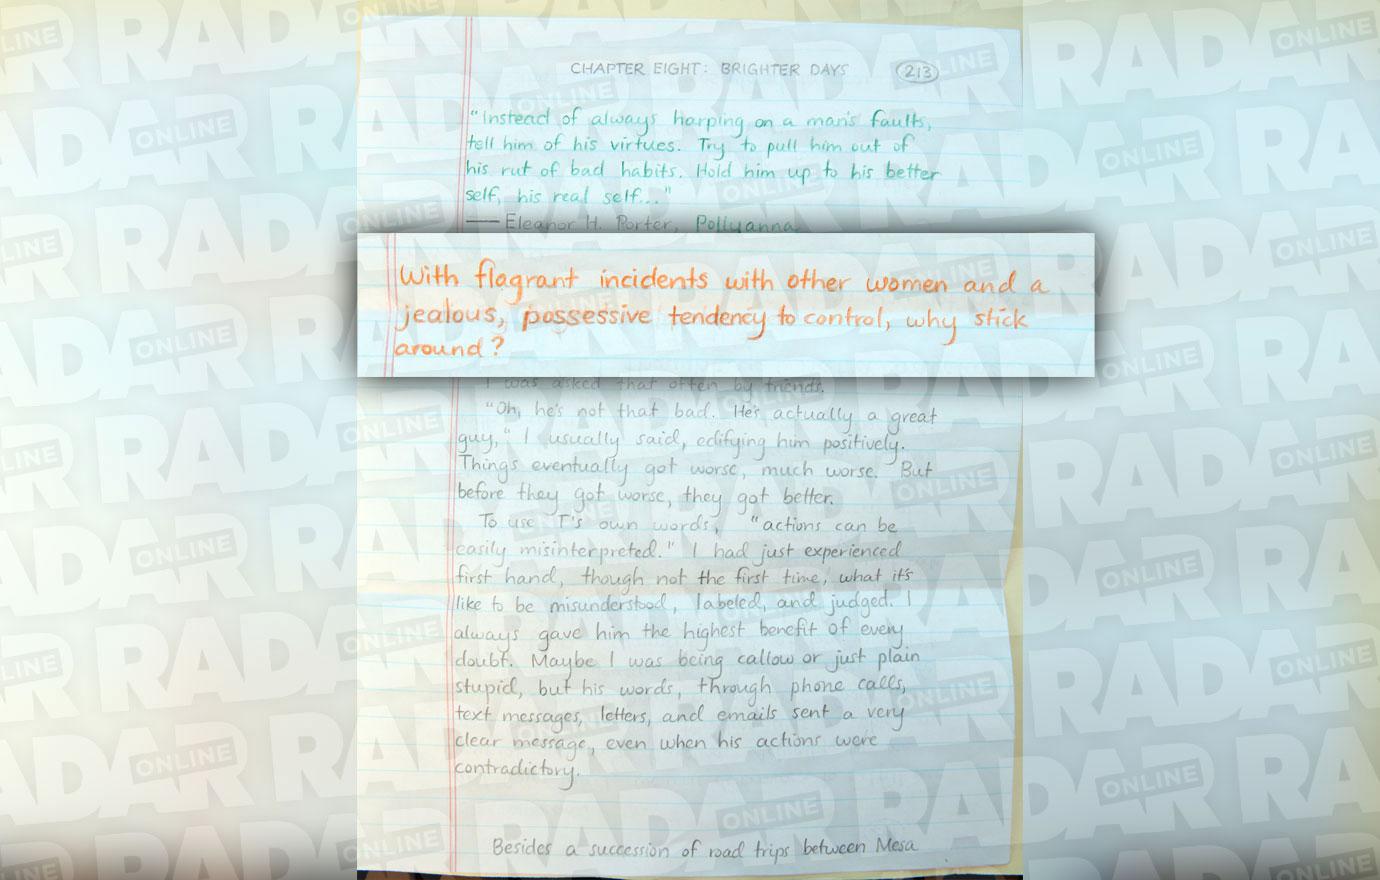 CHAPTER EIGHT: BRIGHTER DAYS 213
"Instead of always harping on a man's faults,
tell him of his virtues. Try to pull him out of
his rut of bad habits. Hold him up to his better
self, his real self..."
— Eleanor H. Porter, Pollyanna
With flagrant incidents with other women and a
jealous, possessive tendency to control, why stick
around?
I was asked that often by friends.
"Oh, he's not that bad. He's actually a great
guy," I usually said, edifying him positively.
Things eventually got worse, much worse. But
before they got worse, they got better.
To use T's own words, "actions can be
easily misinterpreted." I had just experienced
first hand, though not the first time, what it's
like to be misunderstood, labeled, and judged. I
always gave him the highest benefit of every
doubt. Maybe I was being callow or just plain
stupid, but his words, through phone calls,
text messages, letters, and emails sent a very
clear message, even when his actions were
contradictory.
Besides a succession of road trips between Mesa
RADAR ONLINE